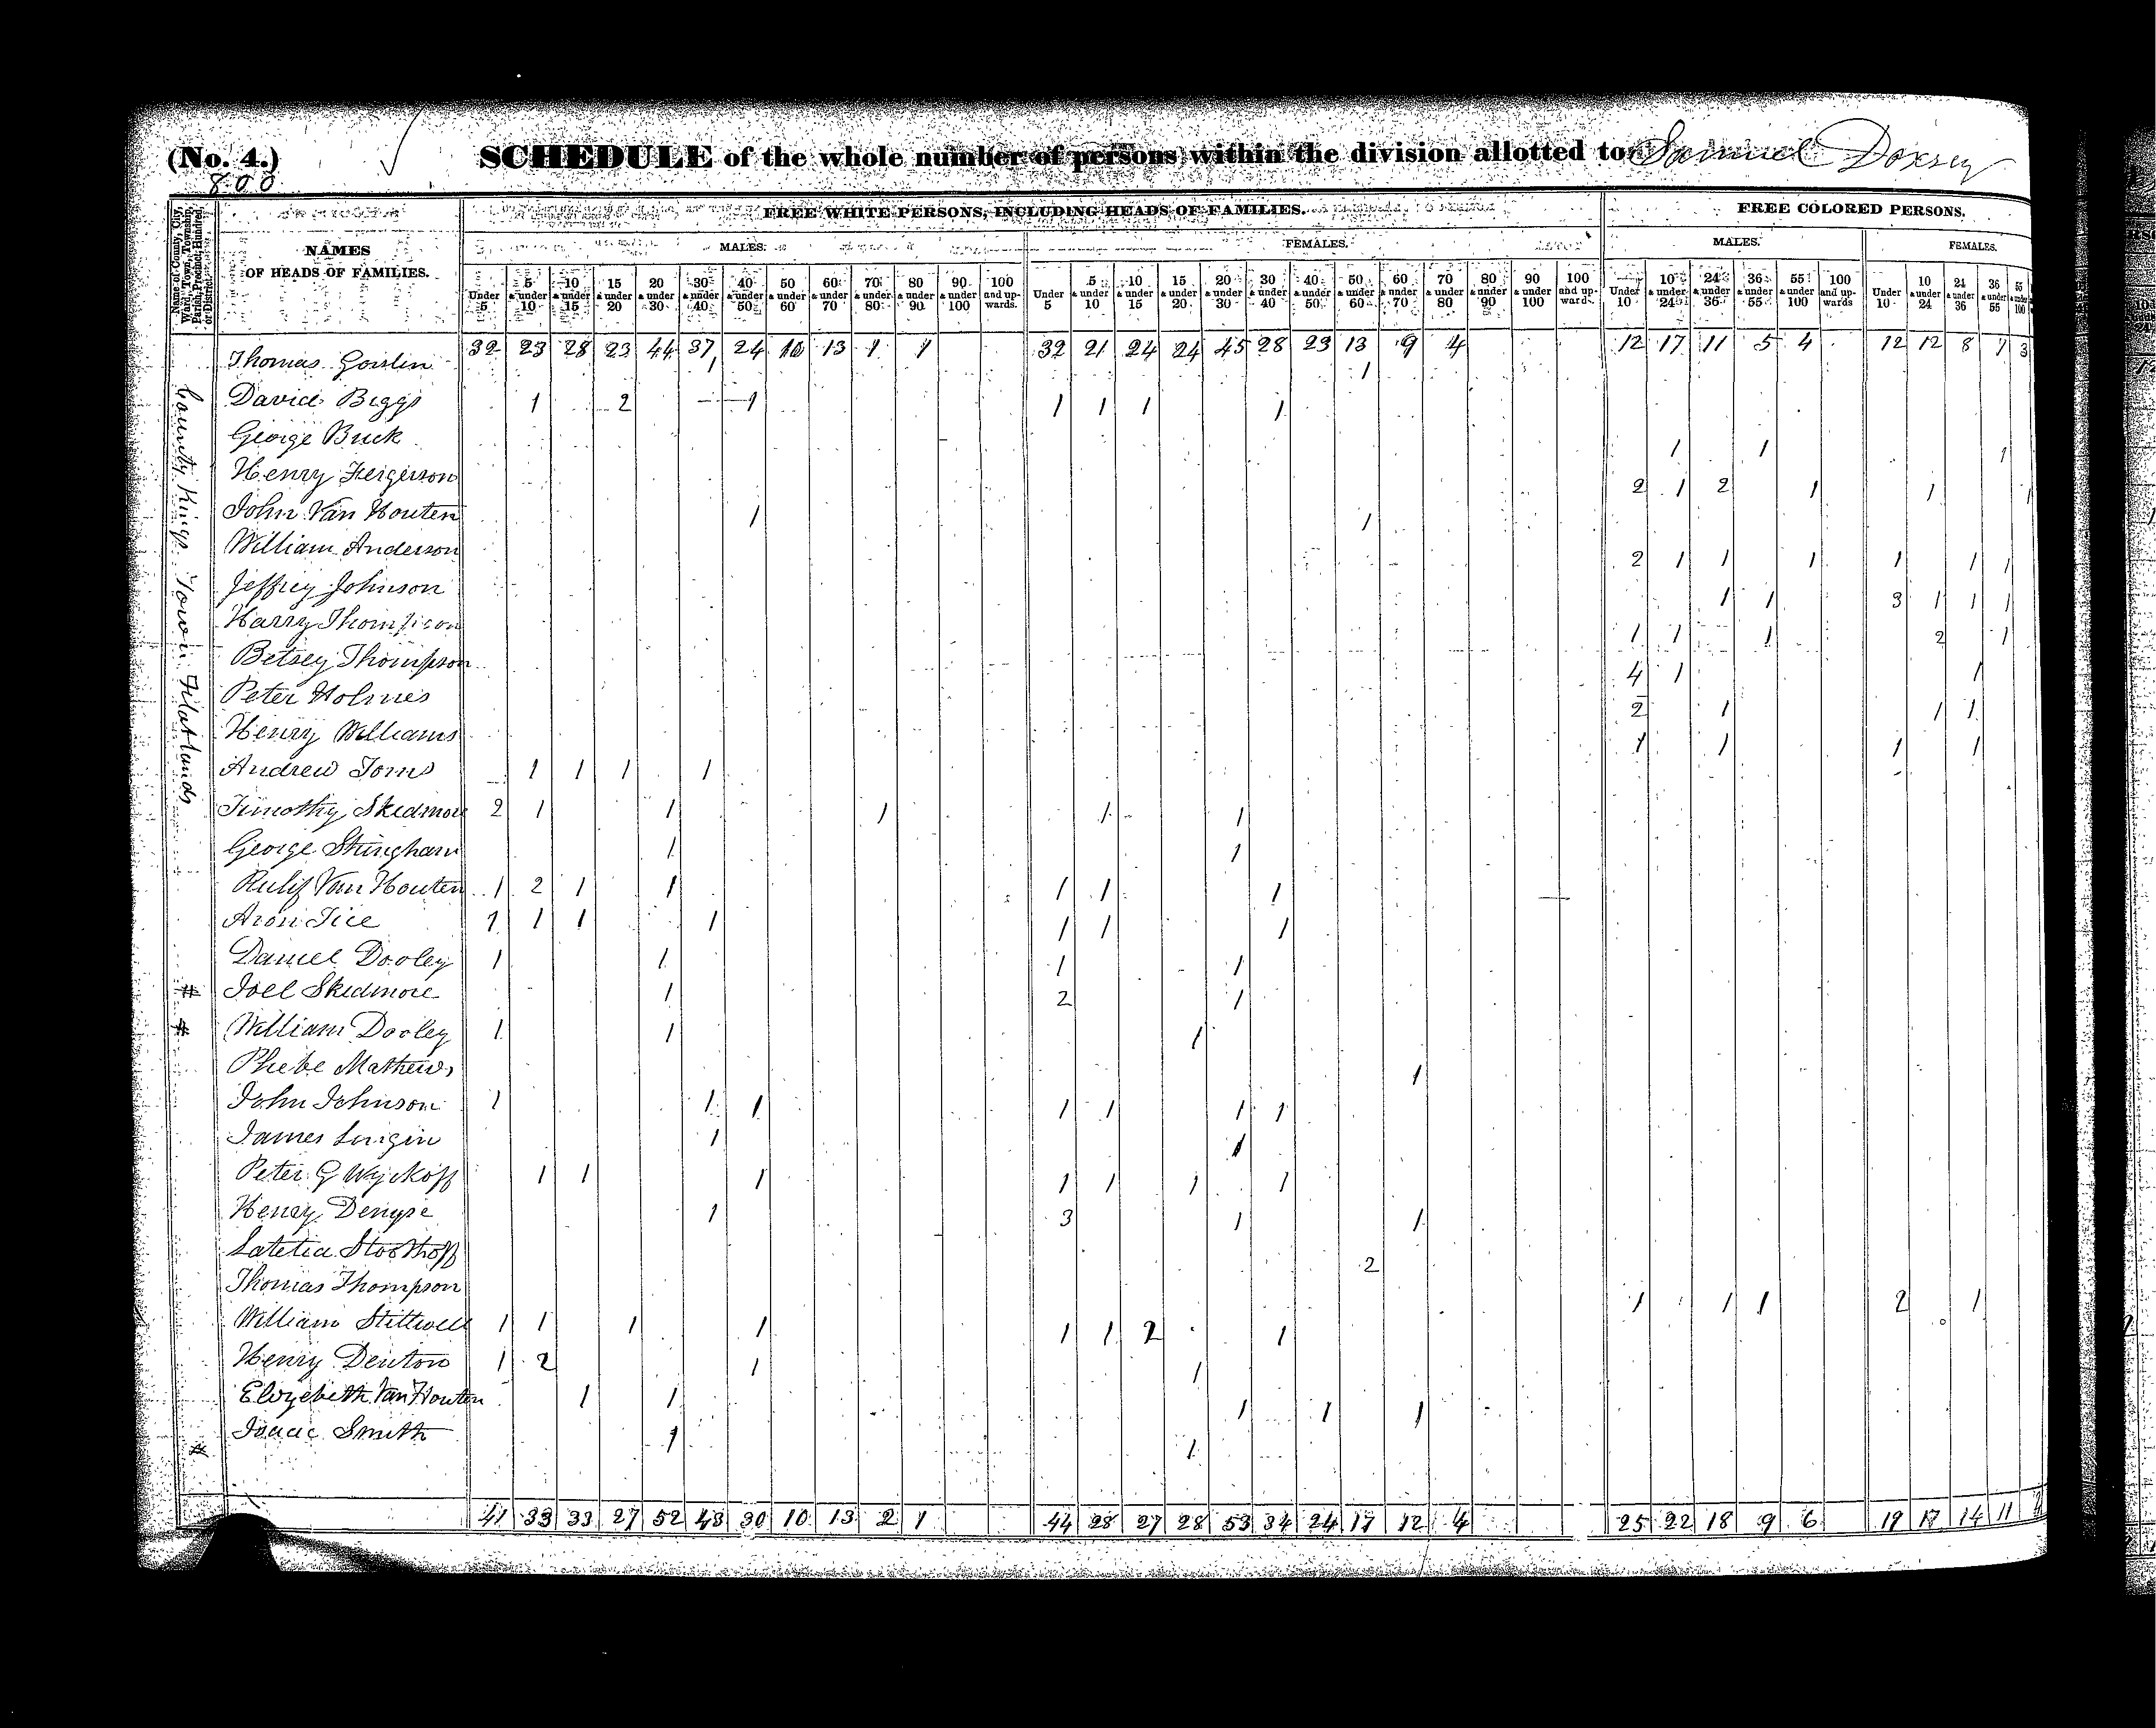 (No. 4.) SCHEDULE of the whole number of persons within the division allotted to Samuel Dorsey
800
Name of County, City, Ward, Town, Township, Parish, Precinct, Hundred, or District.
NAMES OF HEADS OF FAMILIES.
FREE WHITE PERSONS, INCLUDING HEADS OF FAMILIES.
FREE COLORED PERSONS.
MALES. FEMALES. MALES. FEMALES.
Under 5 5 & under 10 10 & under 15 15 & under 20 20 & under 30 30 & under 40 40 & under 50 50 & under 60 60 & under 70 70 & under 80 80 & under 90 90 & under 100 100 and upwards. Under 5 5 & under 10 10 & under 15 15 & under 20 20 & under 30 30 & under 40 40 & under 50 50 & under 60 60 & under 70 70 & under 80 80 & under 90 90 & under 100 100 and upwards. Under 10 10 & under 24 24 & under 36 36 & under 55 55 & under 100 100 and upwards Under 10 10 & under 24 24 & under 36 36 & under 55 55 & under 100
County Kings Town Flatlands
32 23 28 23 44 37 24 10 13 1 1 32 21 24 24 45 28 23 13 9 4 12 17 11 5 4 12 12 8 7 3
Thomas Goslin 1 1
David Biggs 1 2 1 1 1 1 1
George Buck 1 1 1
Henry Fergerson 2 1 2 1 1 1
John Van Houten 1 1
William Anderson 2 1 1 1 1 1 1
Jeffrey Johnson 1 1 3 1 1 1
Harry Thompson 1 1 1 2 1
Betsey Thompson 4 1 1
Peter Holmes 2 1 1 1
Henry Williams 1 1 1 1
Andrew Toms 1 1 1 1
Timothy Skidmore 2 1 1 1 1 1
George Stringham 1 1
Rulif Van Houten 1 2 1 1 1 1 1
Aron Tice 1 1 1 1 1 1 1
Daniel Dooley 1 1 1 1
# Joel Skidmore 1 2 1
# William Dooley 1 1 1
Phebe Mathews 1
John Johnson 1 1 1 1 1 1 1
James 1 1
Peter G Wyckoff 1 1 1 1 1 1 1
Henry Denyse 1 3 1 1
Latetia Stoothoff 2
Thomas Thompson 1 1 1 2 1
William Stillwell 1 1 1 1 1 1 2 1
Henry Denton 1 2 1 1
Elizebeth Van Houten 1 1 1 1 1
# Isaac Smith 1 1
41 33 33 27 52 43 30 10 13 2 1 44 28 27 28 53 34 24 17 12 4 25 22 18 9 6 19 17 14 11